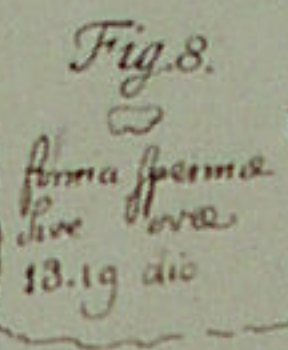 Fig. 8.
forma spermæ
sive ovæ
13.19 dic